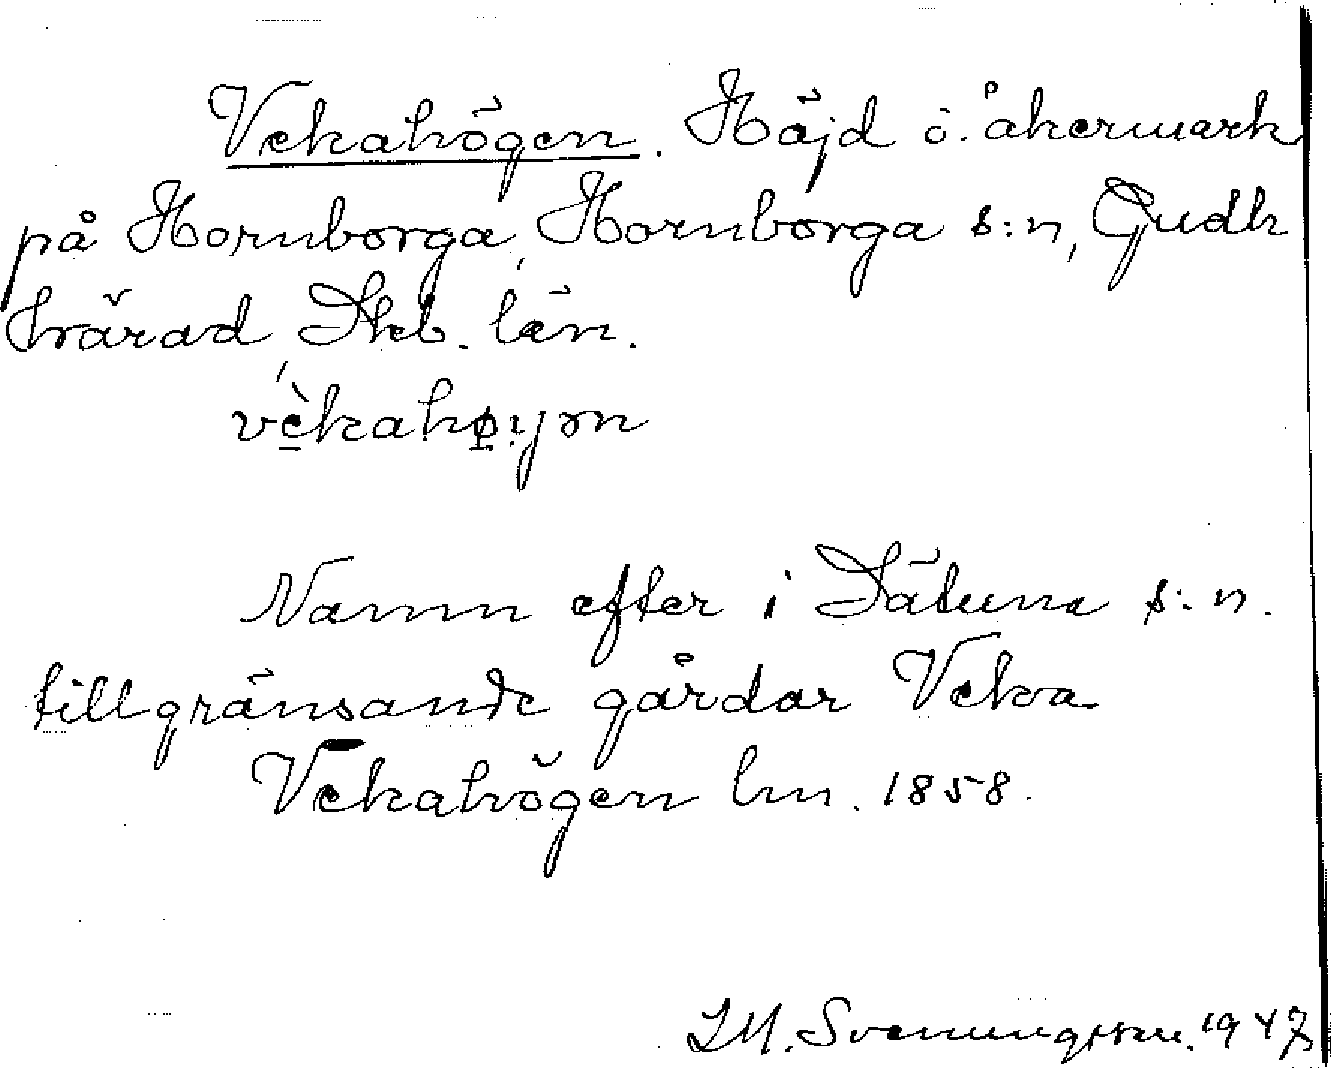 Vekahögen. Höjd o. åkermark
på Hornborga, Hornborga s:n, Gudh
härad, Skb. län.
vèkahø̱:yən
Namn efter i Sätuna s:n.
tillgränsande gårdar Veka.
Vekahögen lm. 1858.
Svenungsson. 1947